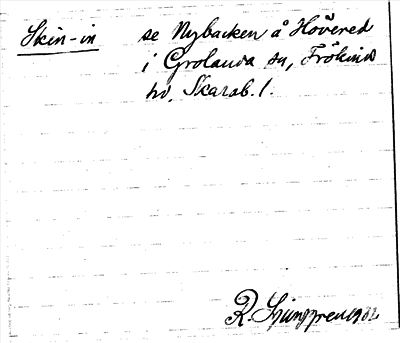 Skin-in se Nybacken å Hövered
i Grolanda sn, Frökind
hd, Skarab. l.
R. Ljunggren 1932